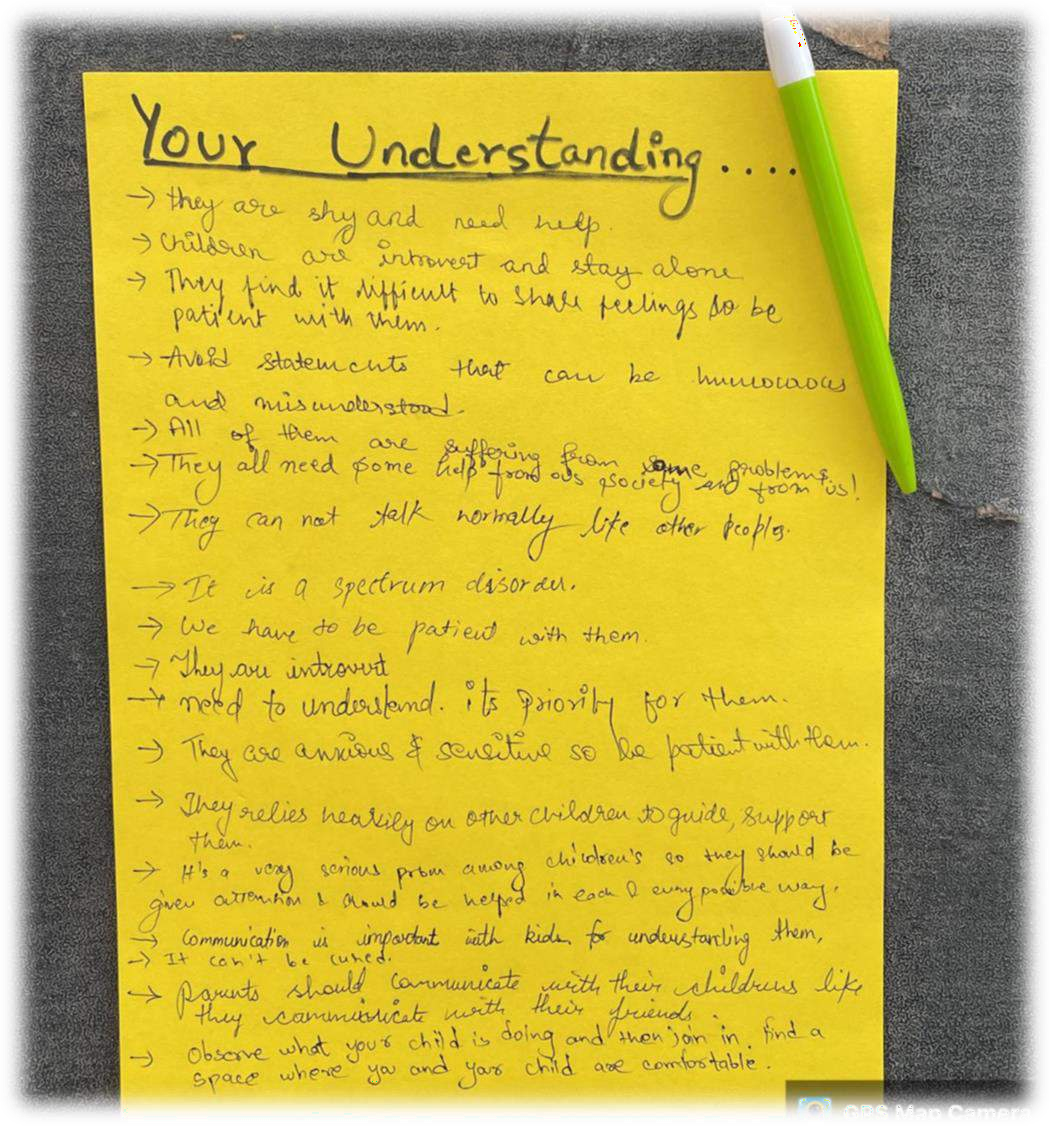 Your Understanding .....
→ they are shy and need help.
→ Children are introvert and stay alone
→ They find it difficult to share feelings so be
patient with them.
→ Avoid statements that can be humourous
and misunderstood.
→ All of them are suffering from some problems
→ They all need some help from our society and from us!
→ They can not talk normally like other peoples.
→ It is a spectrum disorder.
→ We have to be patient with them.
→ They are introvert
→ need to understand. its priority for them.
→ They are anxious & sensitive so be patient with them.
→ They relies heavily on other children to guide, support
them.
→ It's a very serious prom among children's so they should be
given attention & should be helped in each & every possible way.
→ Communication is important with kids for understanding them,
→ It can't be cured.
→ Parents should communicate with their childrens like
they communicate with their friends.
→ Observe what your child is doing and then join in. find a
space where you and your child are comfortable.
GPS Map Camera